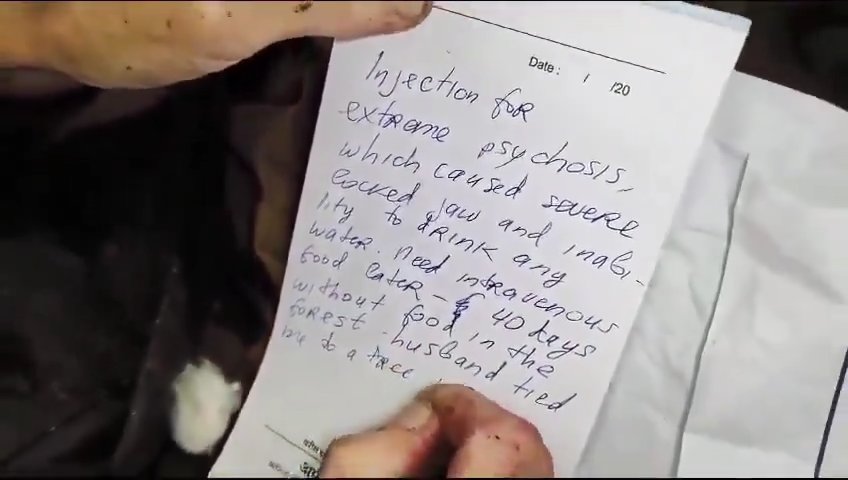 Date: / /20
Injection for
extreme psychosis,
which caused severe
locked jaw and inabi-
lity to drink any
water. Need intravenous
food later - 40 days
without food in the
forest - husband tied
me to a tree